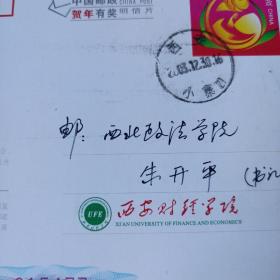 中国邮政 CHINA POST
贺年有奖 明信片
CHINA
2003.12.30.16
邮: 西北政法学院
朱开平 (书记
UFE
西安财经学院
XI'AN UNIVERSITY OF FINANCE AND ECONOMICS